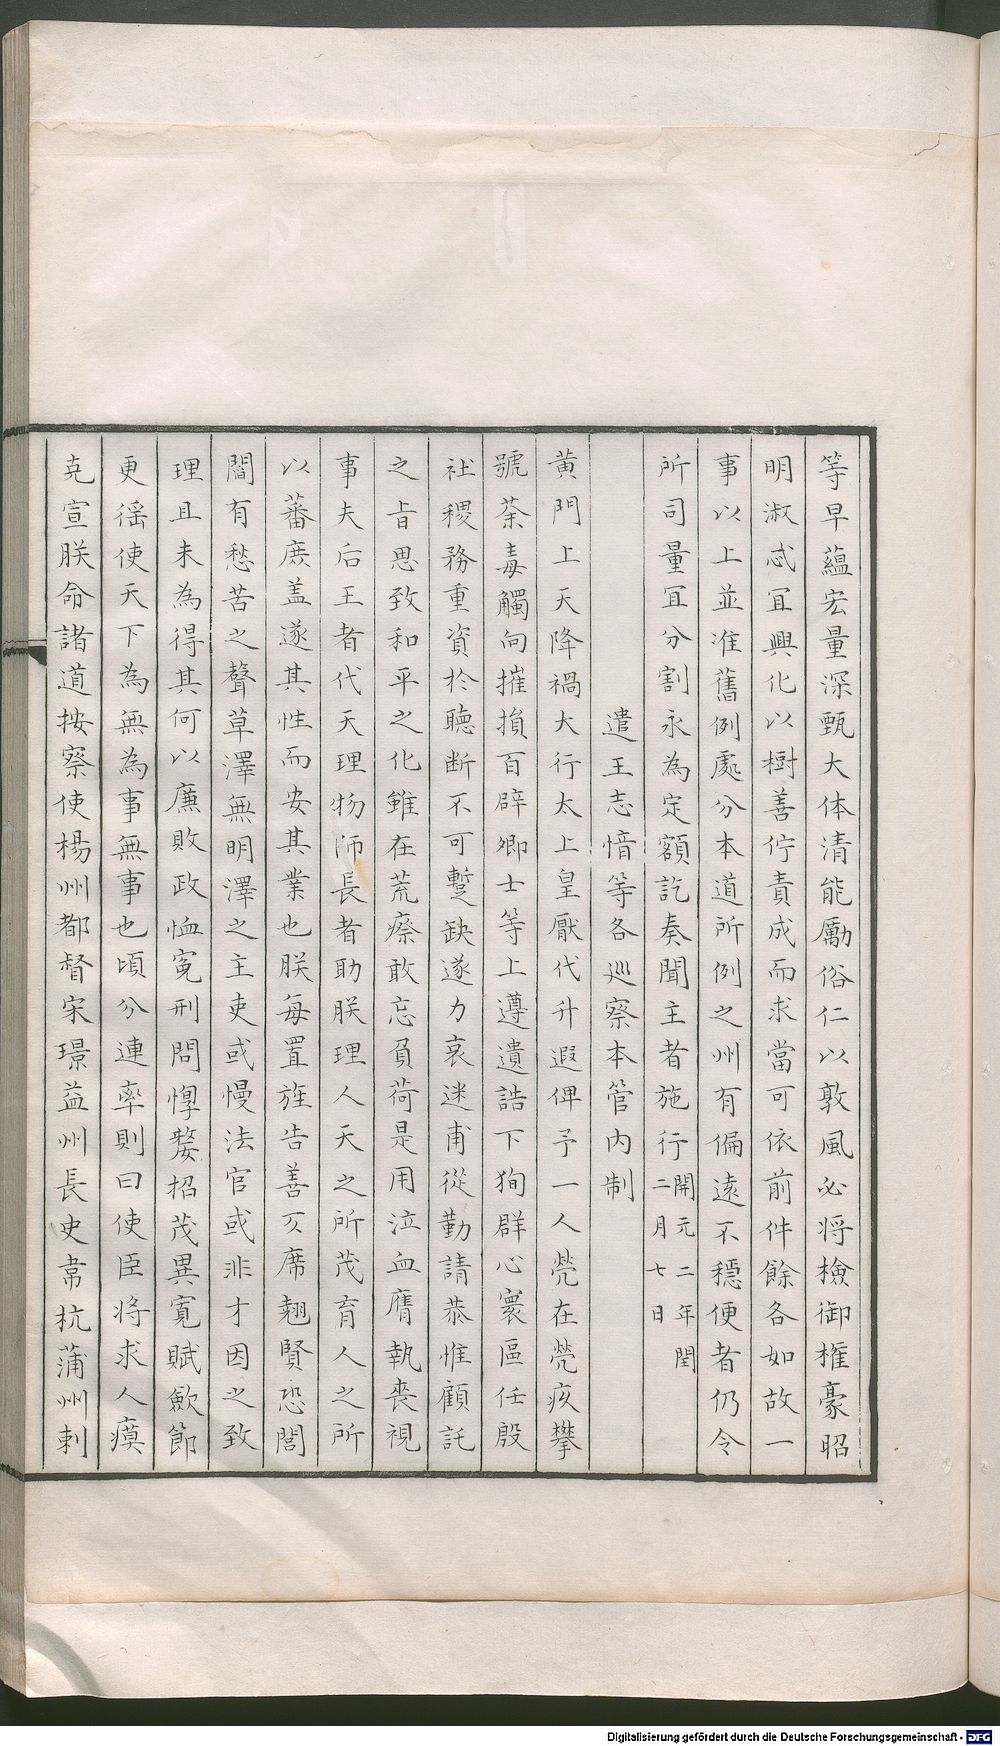 等早蘊宏量深甄大体清能勵俗仁以敦風必将檢御權豪昭
明淑忒冝興化以樹善佇責成而求當可依前件餘各如故一
事以上並准舊例處分本道所例之州有偏遠不穩便者仍令
所司量冝分割永為定額訖奏聞主者施行開元二年閏二月七日
遣王志愔等各巡察本管内制
黄門上天降禍大行太上皇厭代升遐俾予一人煢在煢疚攀
號荼毒觸向摧損百辟卿士等上遵遺誥下狥群心寰區任殷
社稷務重資於聽断不可蹔缺遂力哀迷甫從勤請恭惟顧託
之旨思致和平之化雖在荒瘵敢忘負荷是用泣血膺執喪視
事夫后王者代天理物师長者助朕理人天之所茂育人之所
以蕃庶盖遂其性而安其業也朕每置旌告善仄席翹賢恐閭
閻有愁苦之聲草澤無明澤之主吏或慢法官或非才因之致
理且未為得其何以廉敗政恤寃刑問惸嫠招茂異寛賦歛節
更徭使天下為無為事無事也頃分連率則曰使臣将求人瘼
克宣朕命諸道按察使楊州都督宋璟益州長史韋抗蒲州刺
Digitalisierung gefördert durch die Deutsche Forschungsgemeinschaft - DFG